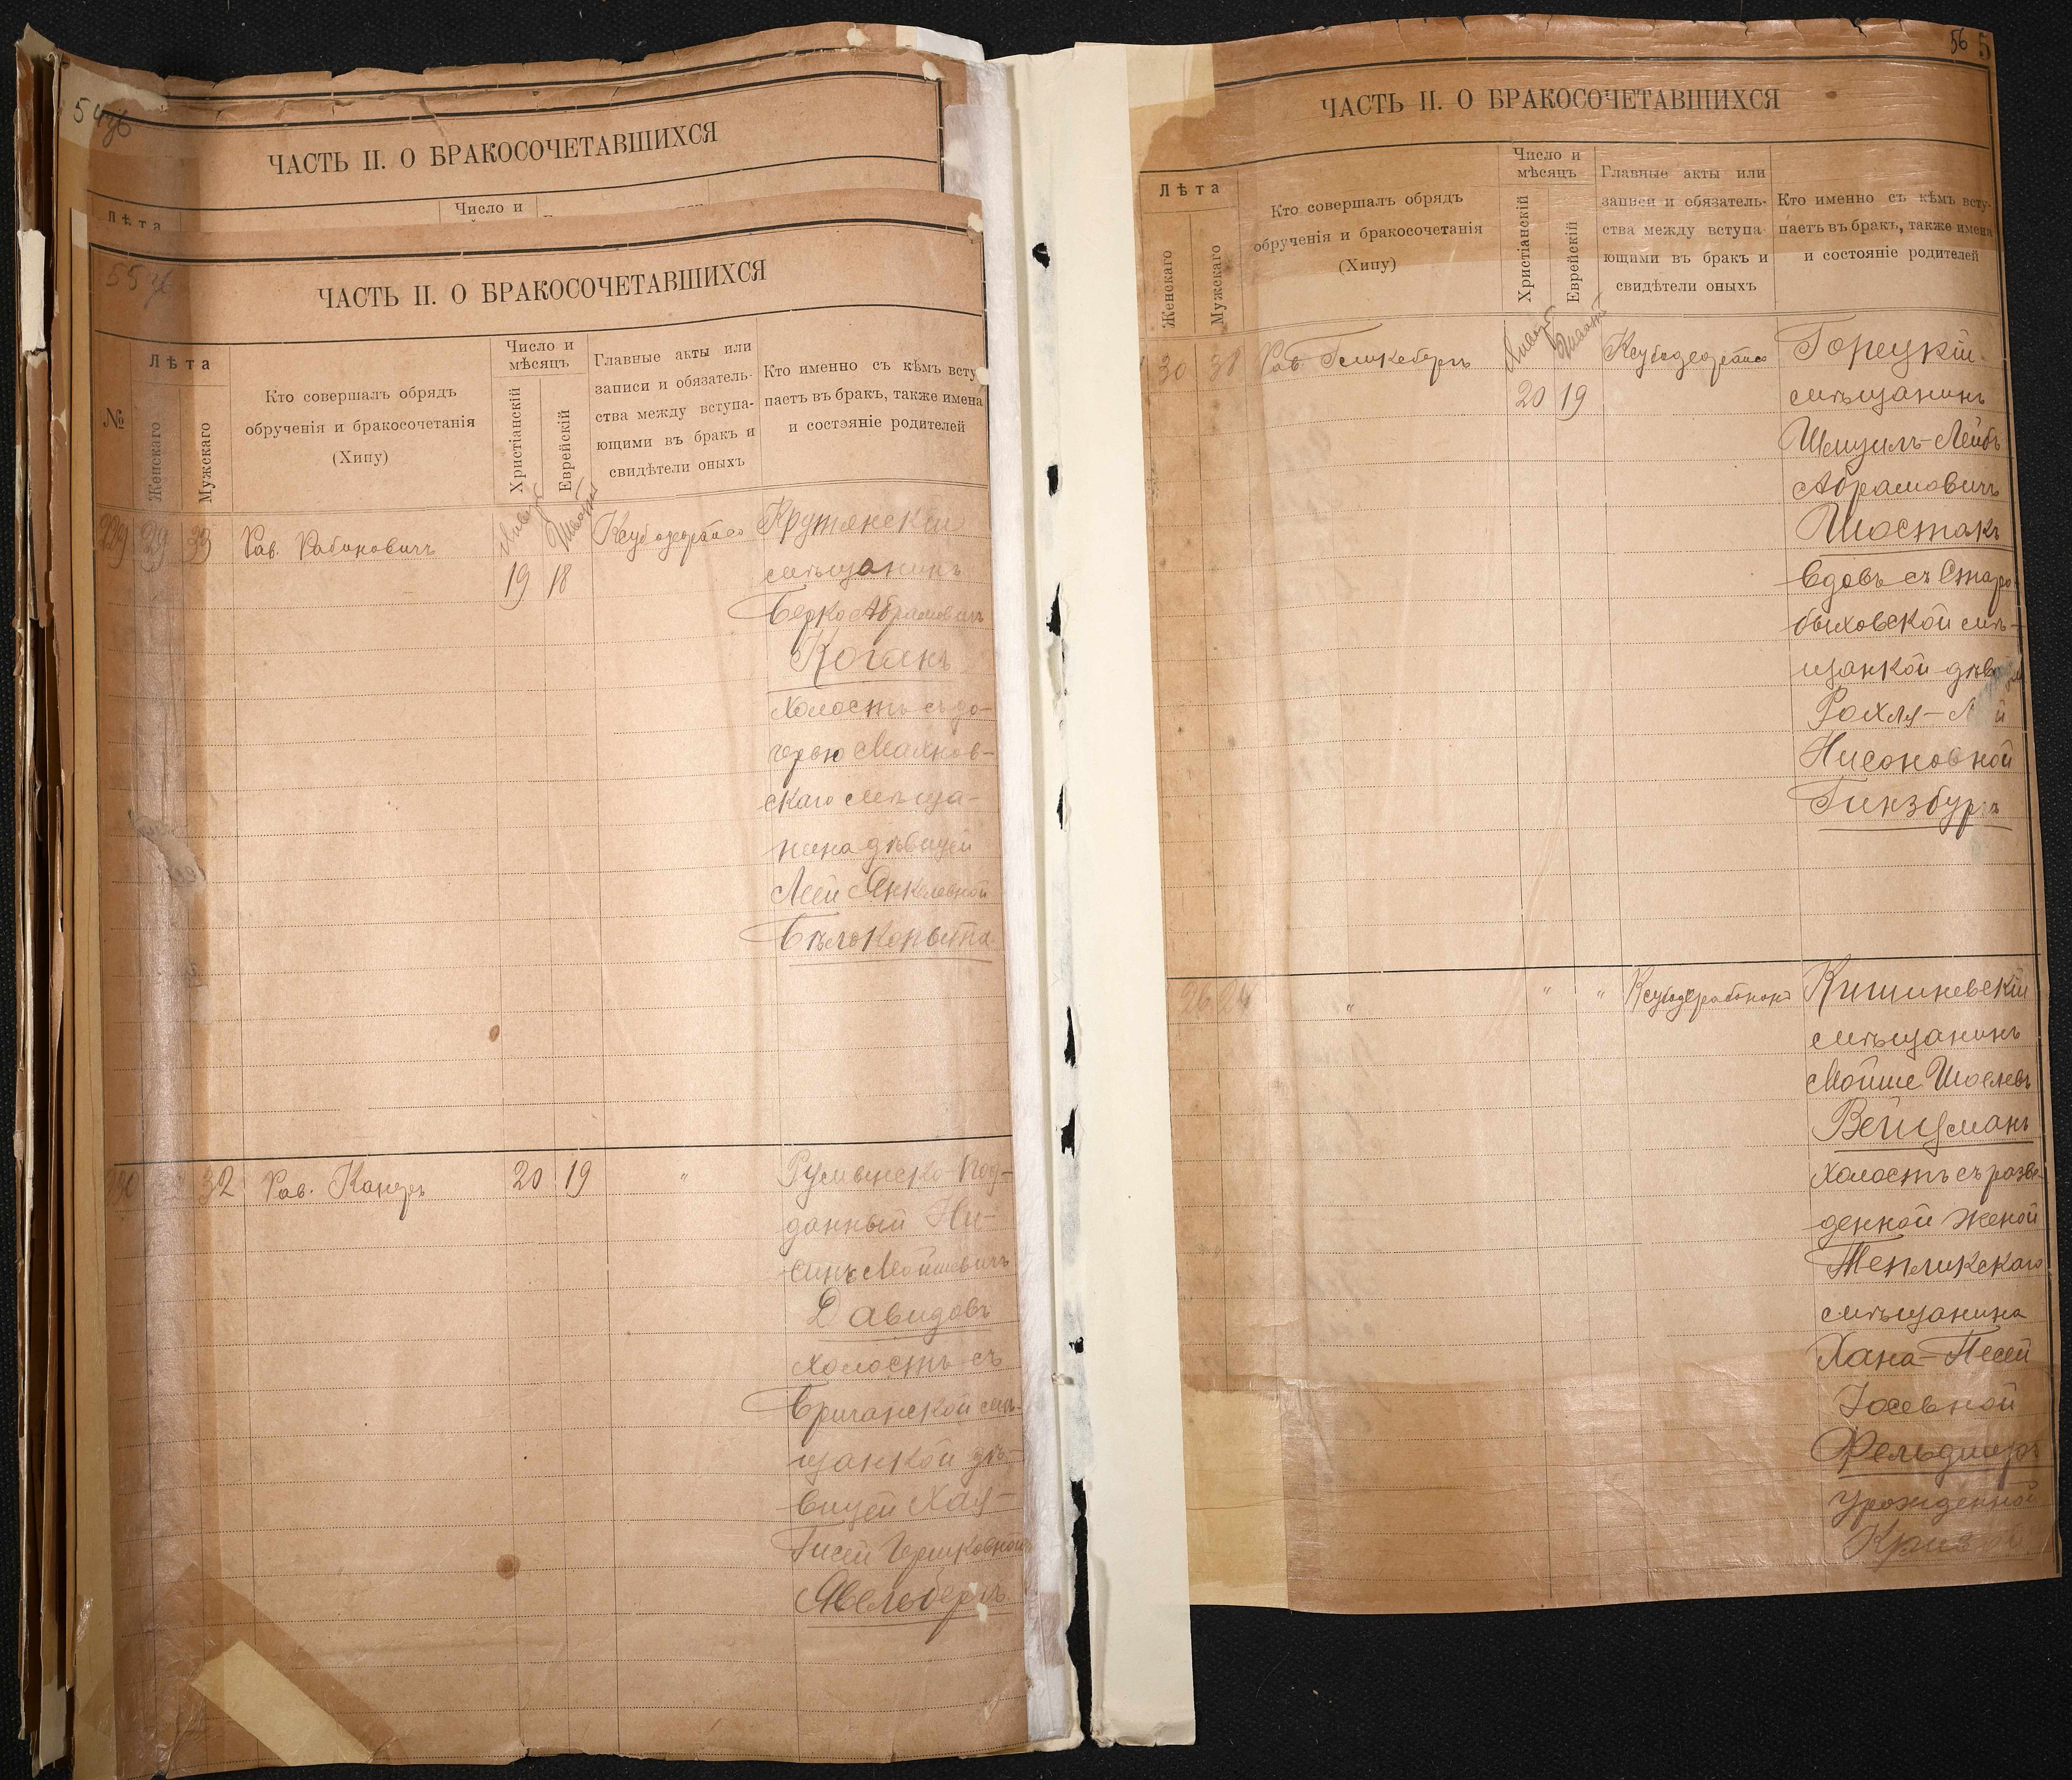 54
ЧАСТЬ II. О БРАКОСОЧЕТАВШИХСЯ
Лѣта
Число и
55
ЧАСТЬ II. О БРАКОСОЧЕТАВШИХСЯ
№
Лѣта
Женскаго
Мужскаго
Кто совершалъ обрядъ
обрученія и бракосочетанія
(Хипу)
Число и
мѣсяцъ
Христіанскій
Еврейскій
Главные акты или
записи и обязатель-
ства между вступа-
ющими въ бракъ и
свидѣтели оныхъ
Кто именно съ кѣмъ всту-
паетъ въ бракъ, также имена
и состояніе родителей
229 29 33 Рав. Рабиновичъ
19 18
Крутянскій
мѣщанинъ
Берко Абрамовичъ
Коганъ
холостъ съ до-
черью Маяков-
скаго мѣща-
нина дѣвицей
Леей Янкелевной
Бѣлокопыта
32 Рав. Канеръ 20 19 "
Румынско под-
данный Ни-
синъ Мойшевичъ
Давидовъ
холостъ съ
Бричанской мѣ-
щанкой дѣ-
вицей Хая-
Гисей Гершковной
56 5
ЧАСТЬ II. О БРАКОСОЧЕТАВШИХСЯ
Лѣта
Женскаго
Мужскаго
Кто совершалъ обрядъ
обрученія и бракосочетанія
(Хипу)
Число и
мѣсяцъ
Христіанскій
Еврейскій
Главные акты или
записи и обязатель-
ства между вступа
ющими въ бракъ и
свидѣтели оныхъ
Кто именно съ кѣмъ всту-
паетъ въ бракъ, также имена
и состояніе родителей
30 38 Рав.
20 19
Горецкій
мѣщанинъ
Абрамовичъ
Шостакъ
вдовъ съ Старо-
быховской мѣ-
щанкой
Рохля-
Нисоновной
Гинзбургъ
26 24 " " "
Кишиневскій
мѣщанинъ
Мойше
Вейцманъ
холостъ съ разве-
денной женой
Тепликскаго
мѣщанина
Хана-Песей
Іосевной
Фельдшеръ
урожденной